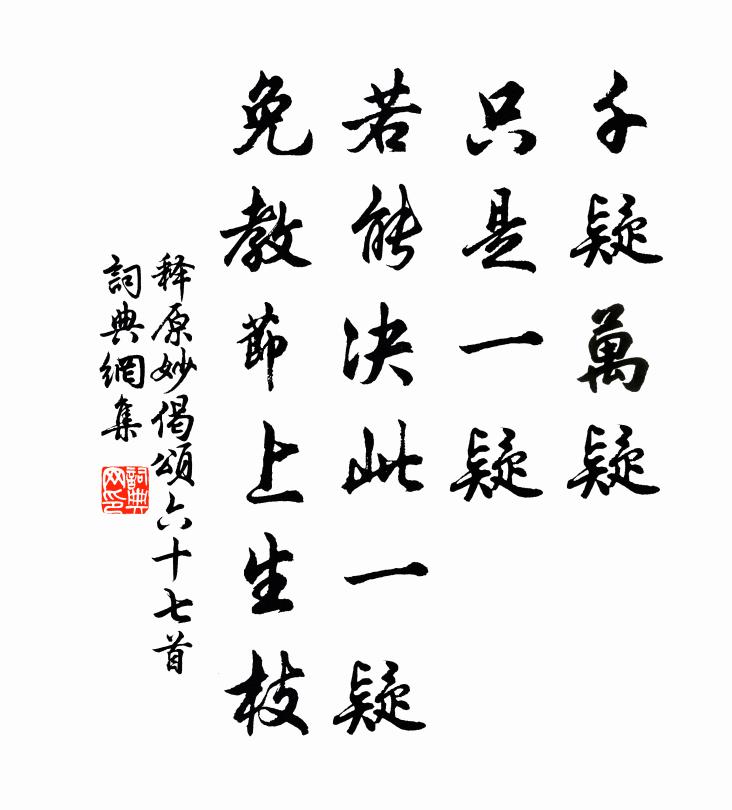 千疑萬疑
只是一疑
若能决此一疑
免教節上生枝
释原妙偈頌六十七首
詞典網集
詞典網印